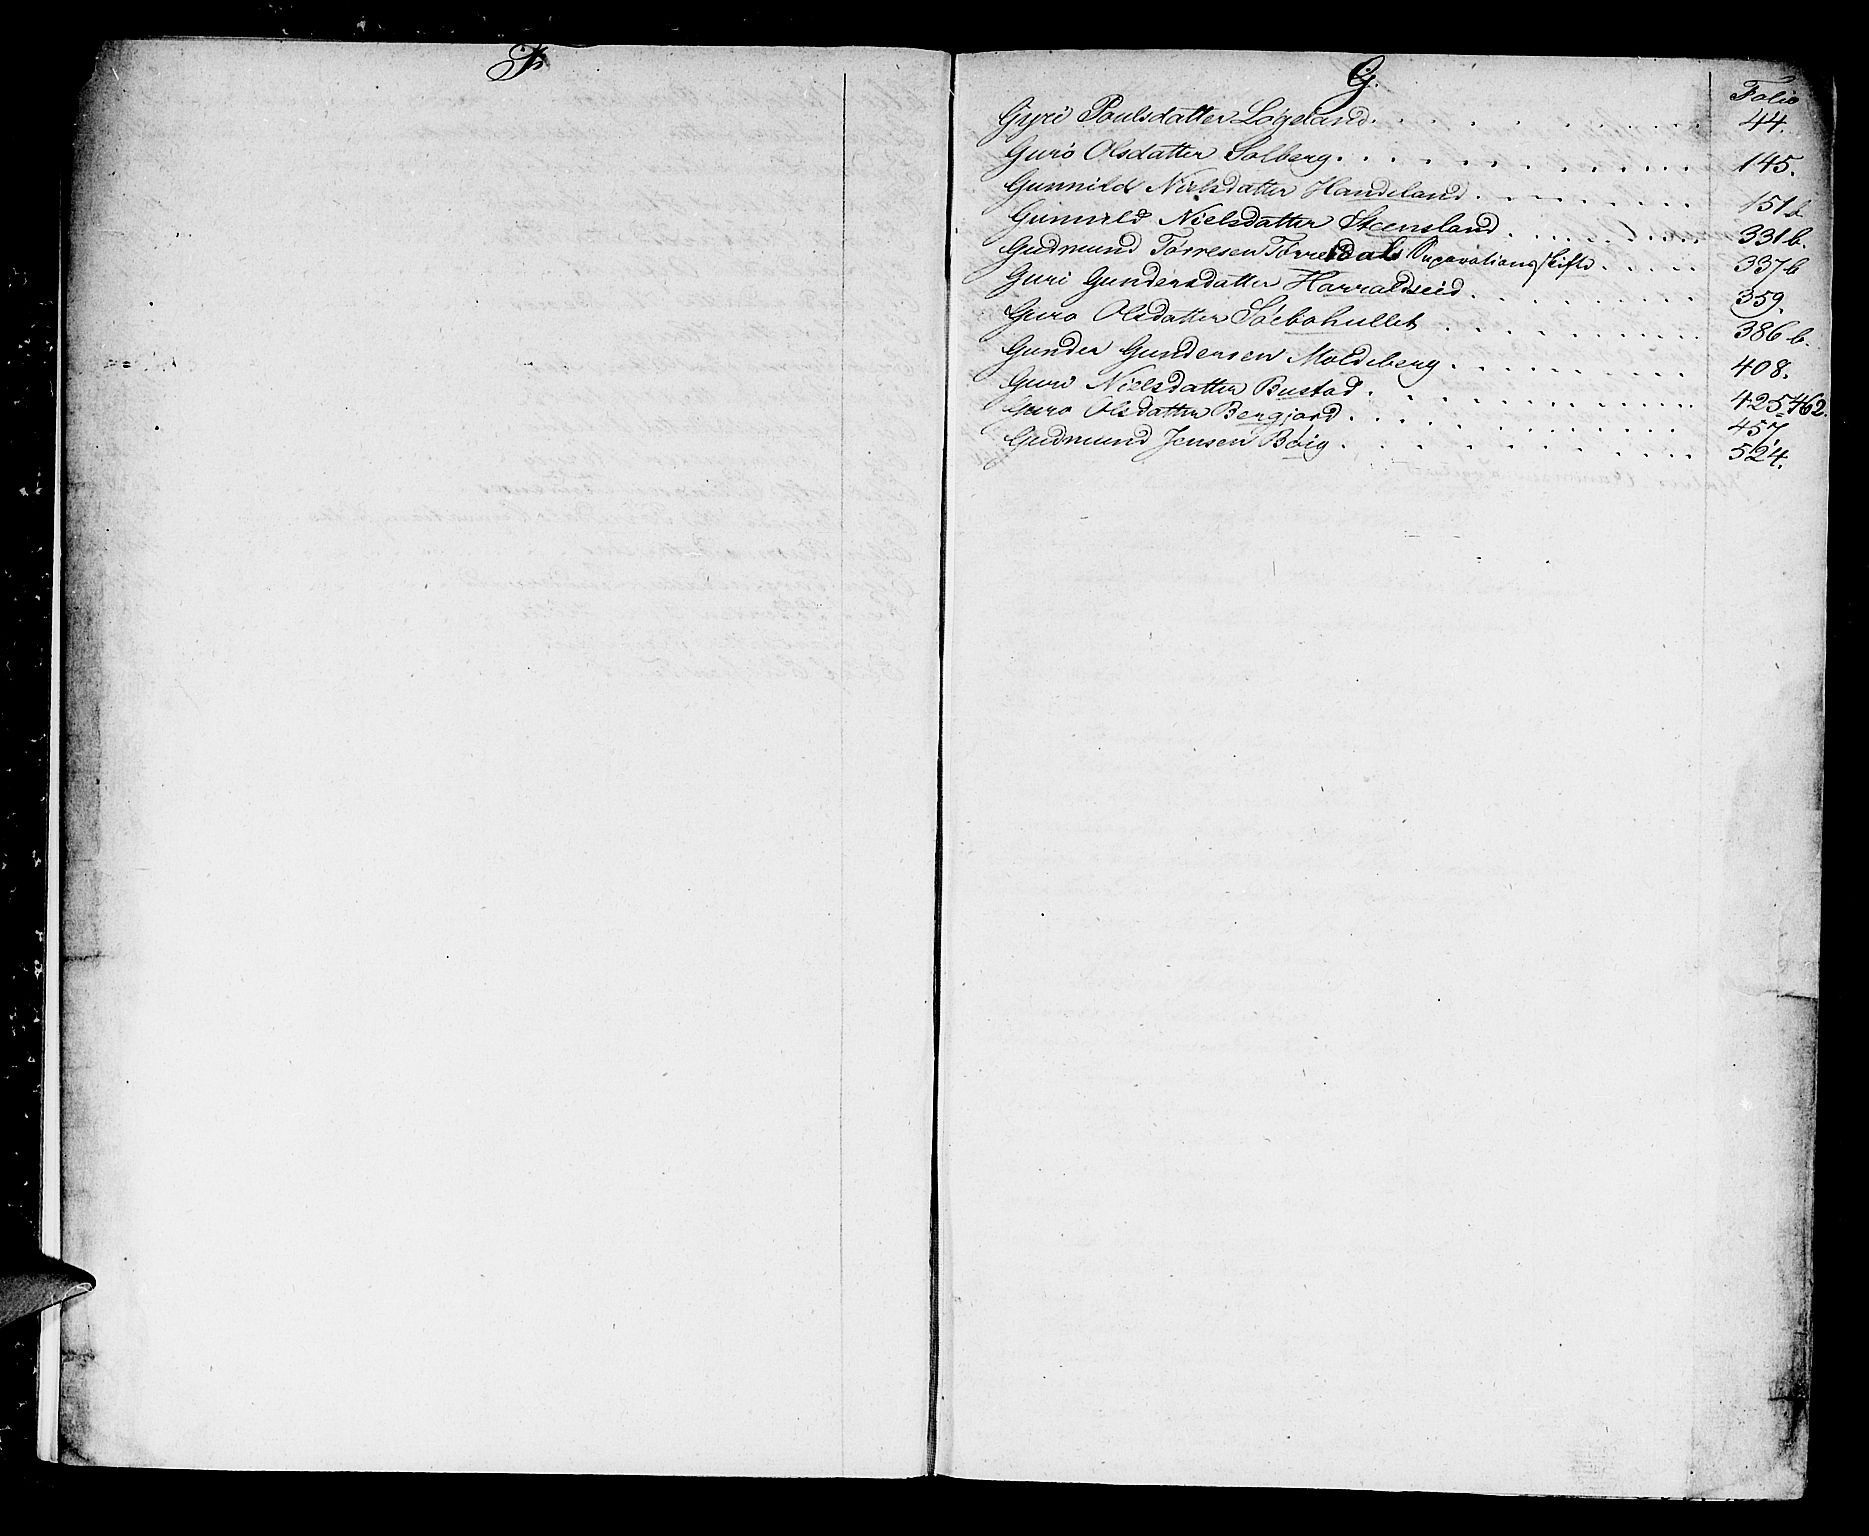 F.
G.
Folio
Gyri Poulsdatter Løgeland. 44.
Guro Olsdatter Solberg. 145.
Gunnild Nielsdatter Handeland. 151
Gunnild Nielsdatter Steensland. 331 b.
Gudmund Tørresen Tørresdal Separationsskifte. 337 b
Guri Gundersdatter Harraldseid. 359.
Guro Olsdatter Søebohullet. 386 b.
Gunder Gundersen Moldeberg. 408.
Guri Nielsdatter Bustad. 425, 462.
Guro Olsdatter Bergjord. 457
Gudmund Jensen Bøig. 524.